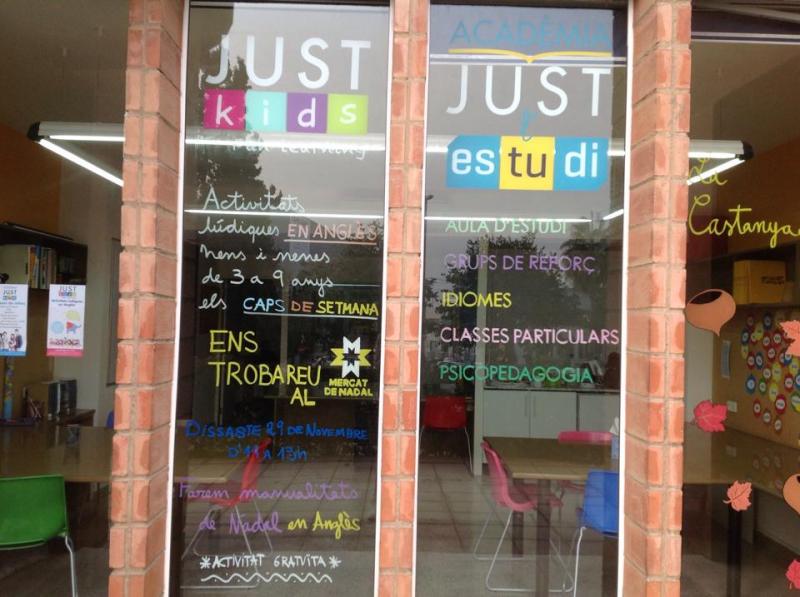 JUST
kids
Fun Learning
Activitats
lúdiques EN ANGLÈS
nens i nenes
de 3 a 9 anys
els CAPS DE SETMANA
ENS
TROBAREU
AL
MERCAT
DE NADAL
DISSABTE 29 DE NOVEMBRE
D'11 A 13h
Farem manualitats
de Nadal en Anglès
*ACTIVITAT GRATUÏTA*
ACADÈMIA
JUST
estudi
AULA D'ESTUDI
GRUPS DE REFORÇ
IDIOMES
CLASSES PARTICULARS
PSICOPEDAGOGIA
La
Castanya
JUST
JUST
kids